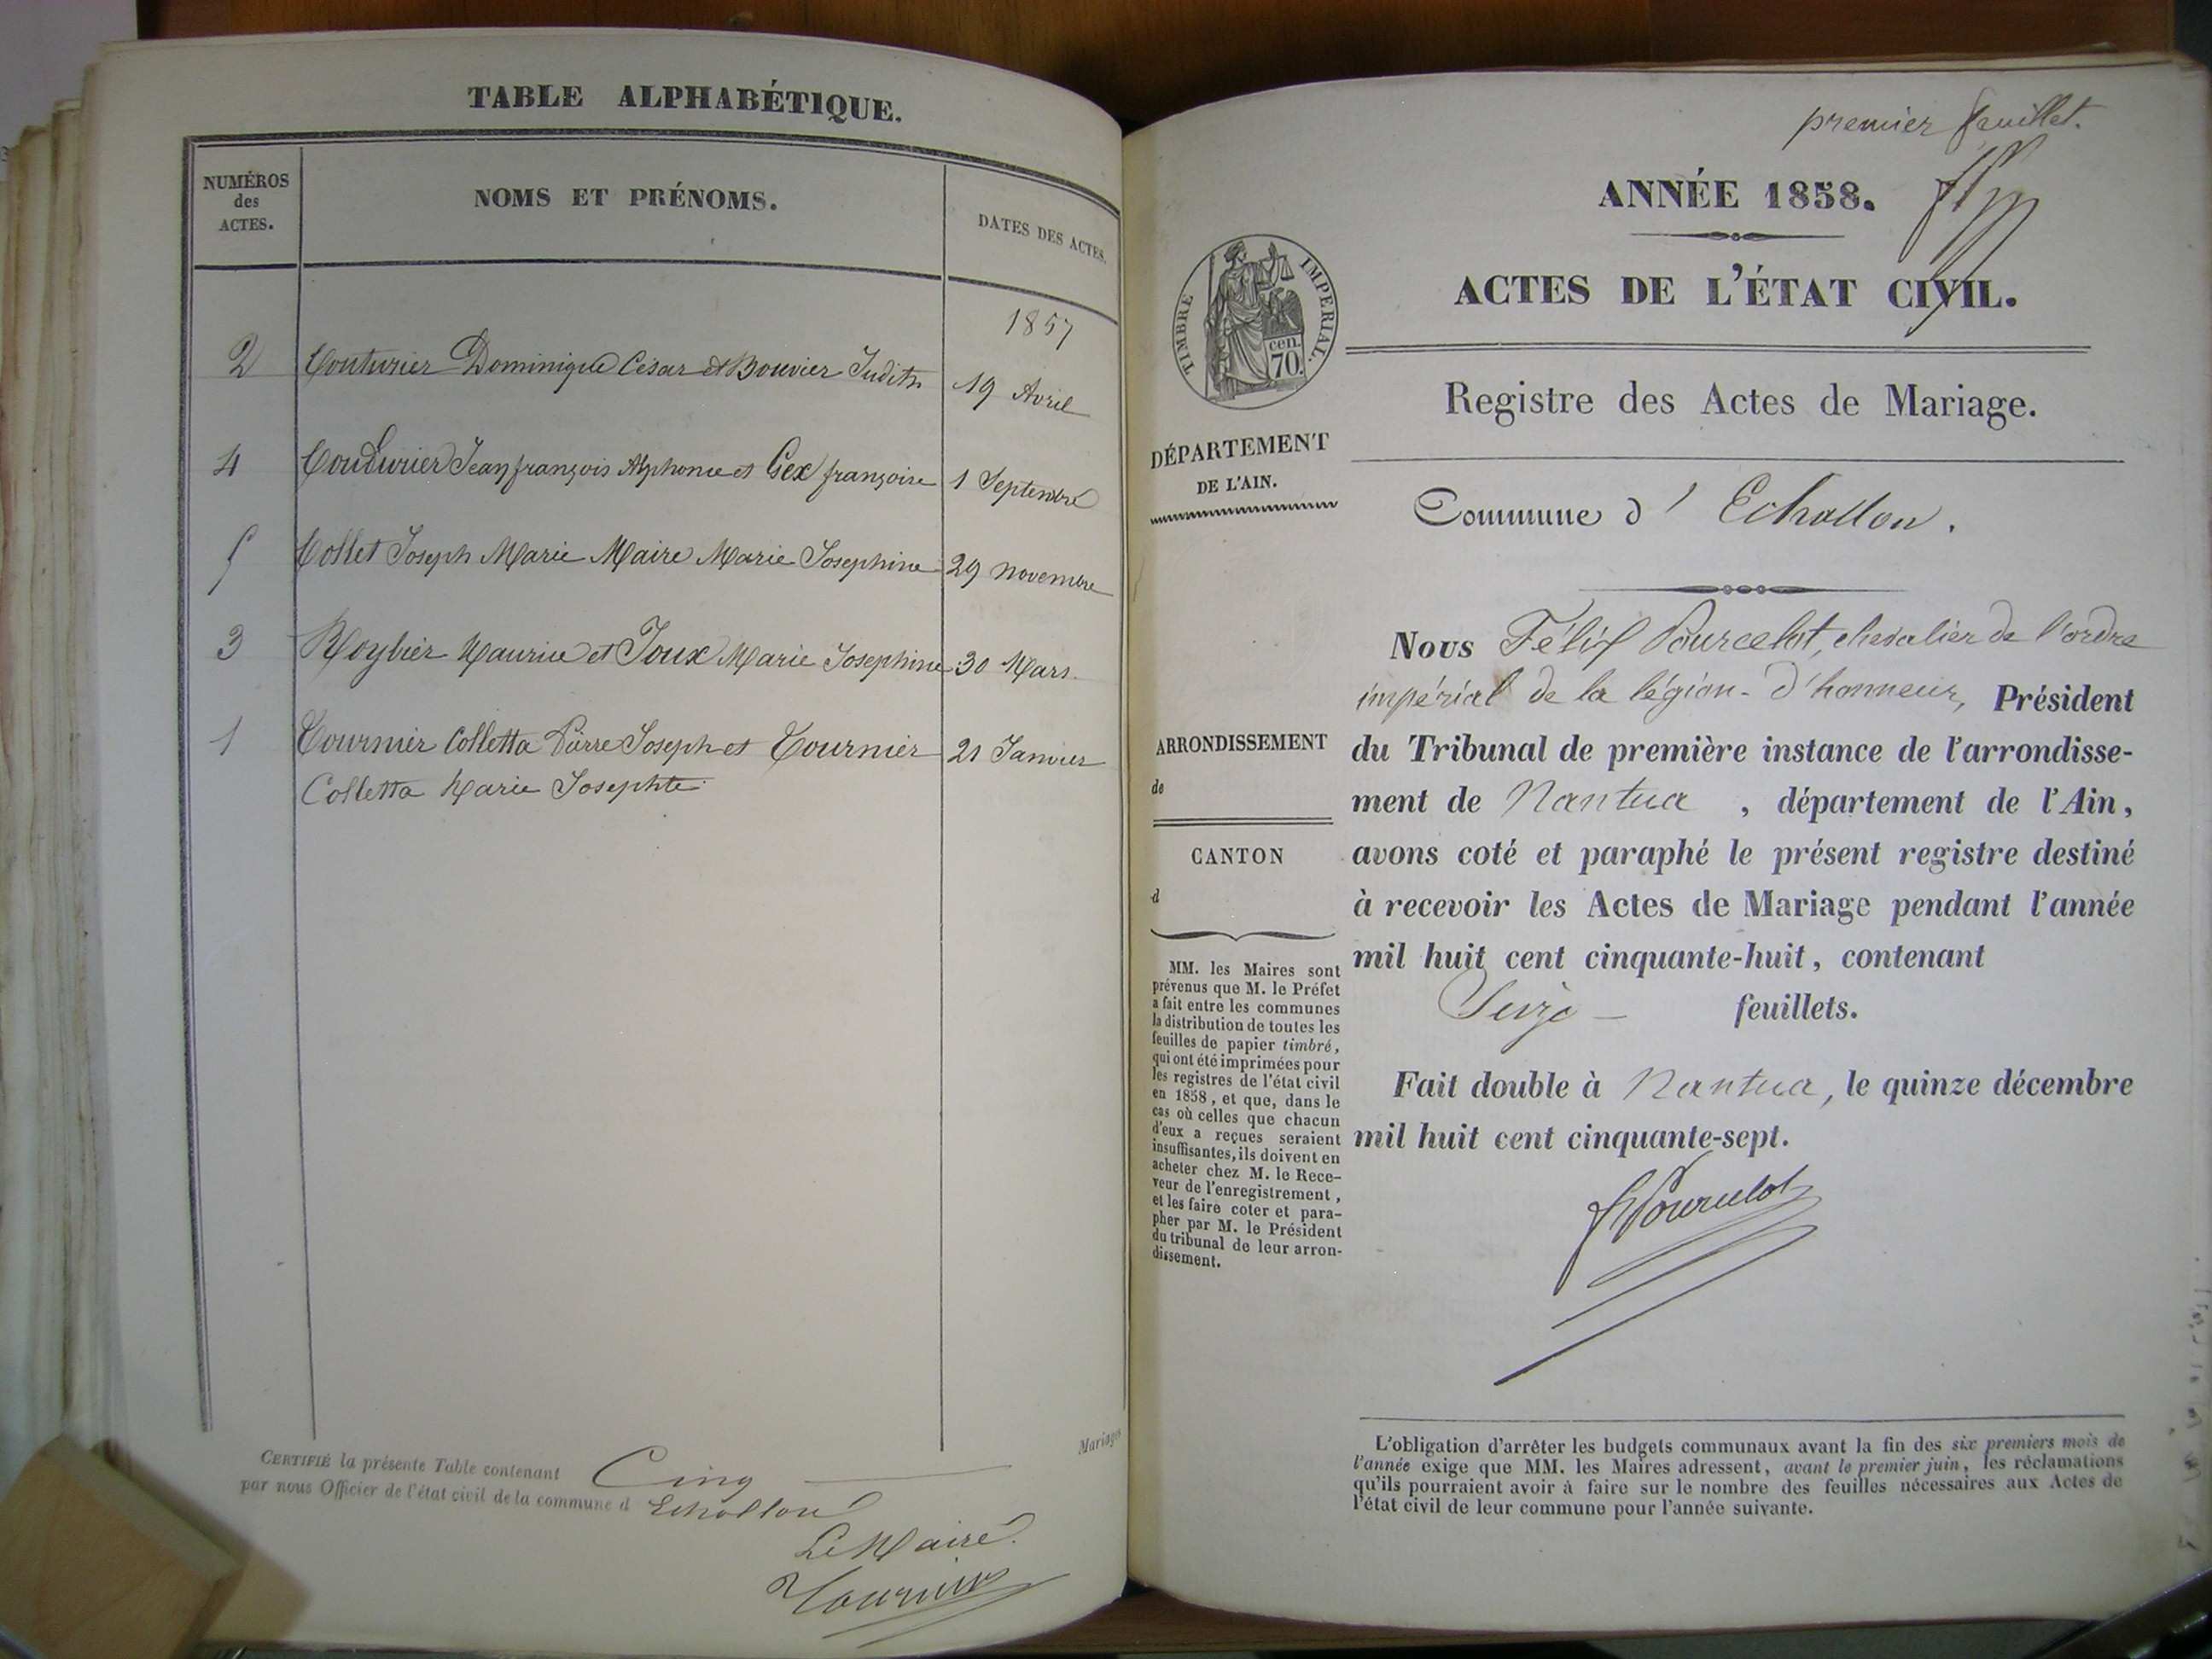 TABLE ALPHABÉTIQUE.
NUMÉROS
des
ACTES.
NOMS ET PRÉNOMS.
DATES DES ACTES.
1857
2 Couturier Dominique César et Bouvier Judith 19 Avril
4 Couturier Jean françois Alphonse et Gex françoise 1 Septembre
5 Collet Joseph Marie Maire Marie Josephine 29 novembre
3 Roybier Maurice et Joux Marie Josephine 30 Mars.
1 Tournier Colletta Pierre Joseph et Tournier 21 Janvier
Colletta Marie Josephte
Mariages
CERTIFIÉ la présente Table contenant Cinq
par nous Officier de l'état civil de la commune d Echallon
Le Maire
Tournier
premier feuillet.
ANNÉE 1858.
ACTES DE L'ÉTAT CIVIL.
TIMBRE IMPERIAL.
cen.
70.
Registre des Actes de Mariage.
DÉPARTEMENT
DE L'AIN.
Commune d' Echallon.
Nous Félix Pourcelot, chevalier de l'ordre
impérial de la légion-d'honneur, Président
du Tribunal de première instance de l'arrondisse-
ment de Nantua, département de l'Ain,
avons coté et paraphé le présent registre destiné
à recevoir les Actes de Mariage pendant l'année
mil huit cent cinquante-huit, contenant
Seize feuillets.
Fait double à Nantua, le quinze décembre
mil huit cent cinquante-sept.
Pourcelot
ARRONDISSEMENT
de
CANTON
d
MM. les Maires sont
prévenus que M. le Préfet
a fait entre les communes
la distribution de toutes les
feuilles de papier timbré,
qui ont été imprimées pour
les registres de l'état civil
en 1858, et que, dans le
cas où celles que chacun
d'eux a reçues seraient
insuffisantes, ils doivent en
acheter chez M. le Rece-
veur de l'enregistrement,
et les faire coter et para-
pher par M. le Président
du tribunal de leur arron-
dissement.
L'obligation d'arrêter les budgets communaux avant la fin des six premiers mois de
l'année exige que MM. les Maires adressent, avant le premier juin, les réclamations
qu'ils pourraient avoir à faire sur le nombre des feuilles nécessaires aux Actes de
l'état civil de leur commune pour l'année suivante.